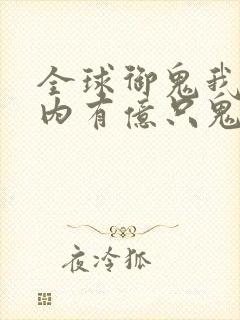 全球御鬼我
内有億只鬼
夜冷狐